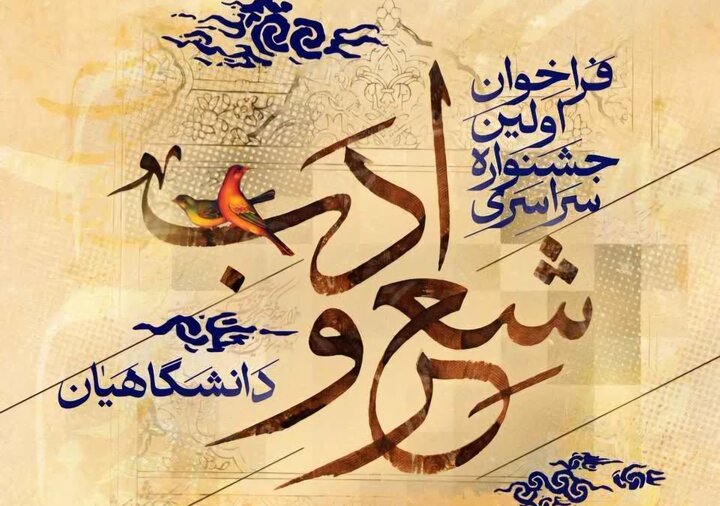 فراخوان
اولین
جشنواره
سراسری
شعر و
ادب
دانشگاهیان